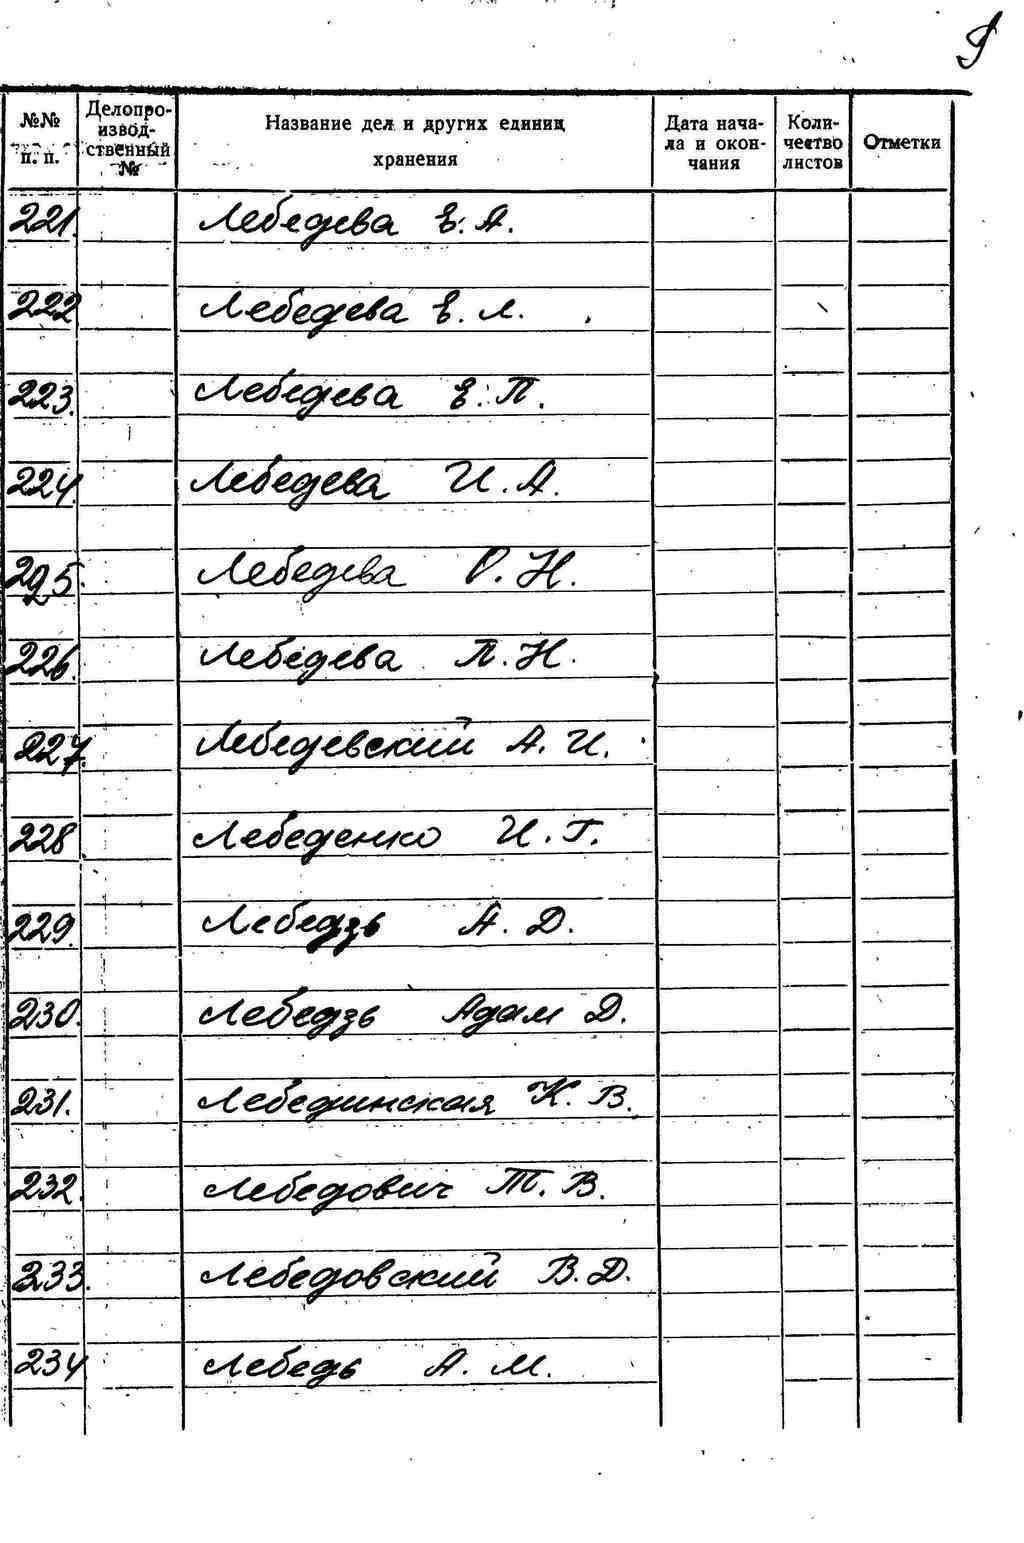 9
№№ п. п. Делопроизводственный № Название дел и других единиц хранения Дата начала и окончания Количество листов Отметки
221. Лебедева Е. А.
222 Лебедева Е. Л.
223. Лебедева Е. П.
224. Лебедева И. А.
225. Лебедева О. Н.
226. Лебедева П. Н.
227. Лебедевский А. И.
228 Лебеденко И. Г.
229. Лебедзь А. Д.
230. Лебедзь Адам Д.
231. Лебединская К. В.
232. Лебедович Т. В.
233. Лебедовский В. Д.
234 Лебедь А. М.